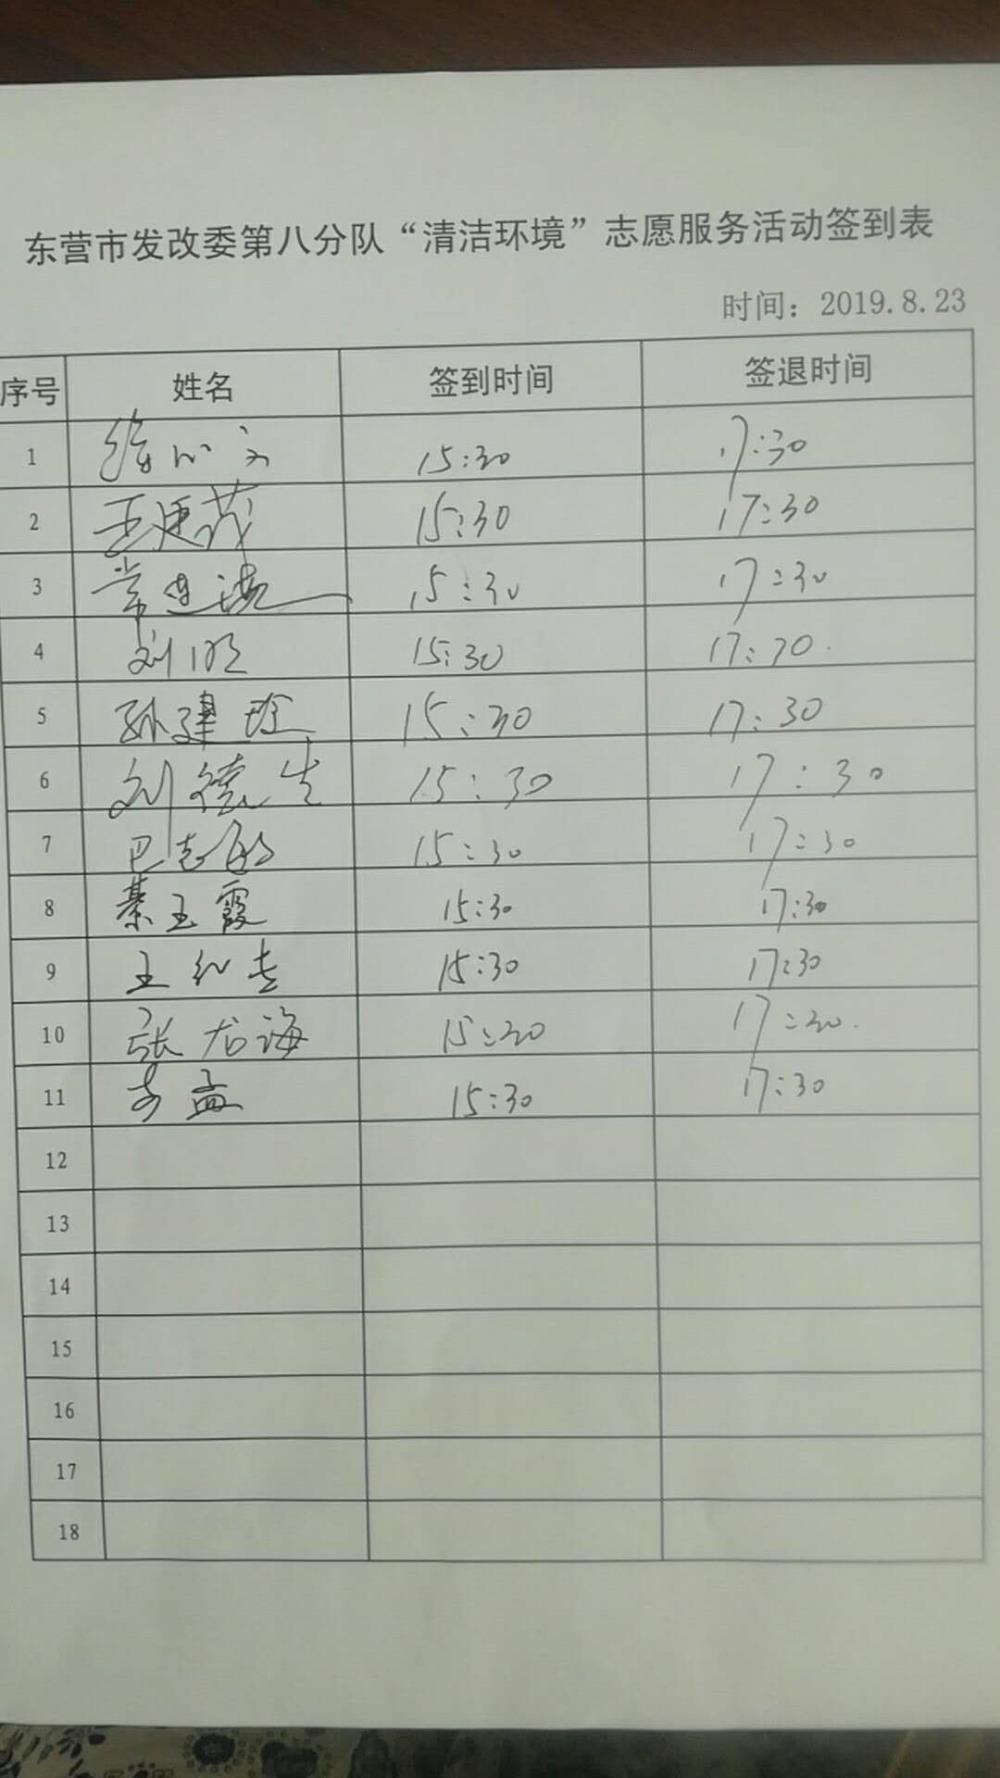 东营市发改委第八分队“清洁环境”志愿服务活动签到表
时间：2019.8.23
序号 姓名 签到时间 签退时间
1 15:30 17:30
2 王廷茂 15:30 17:30
3 常连海 15:30 17:30
4 刘明 15:30 17:30
5 孙建 15:30 17:30
6 刘德生 15:30 17:30
7 巴志 15:30 17:30
8 綦玉霞 15:30 17:30
9 王红 15:30 17:30
10 张龙海 15:30 17:30
11 李孟 15:30 17:30
12
13
14
15
16
17
18